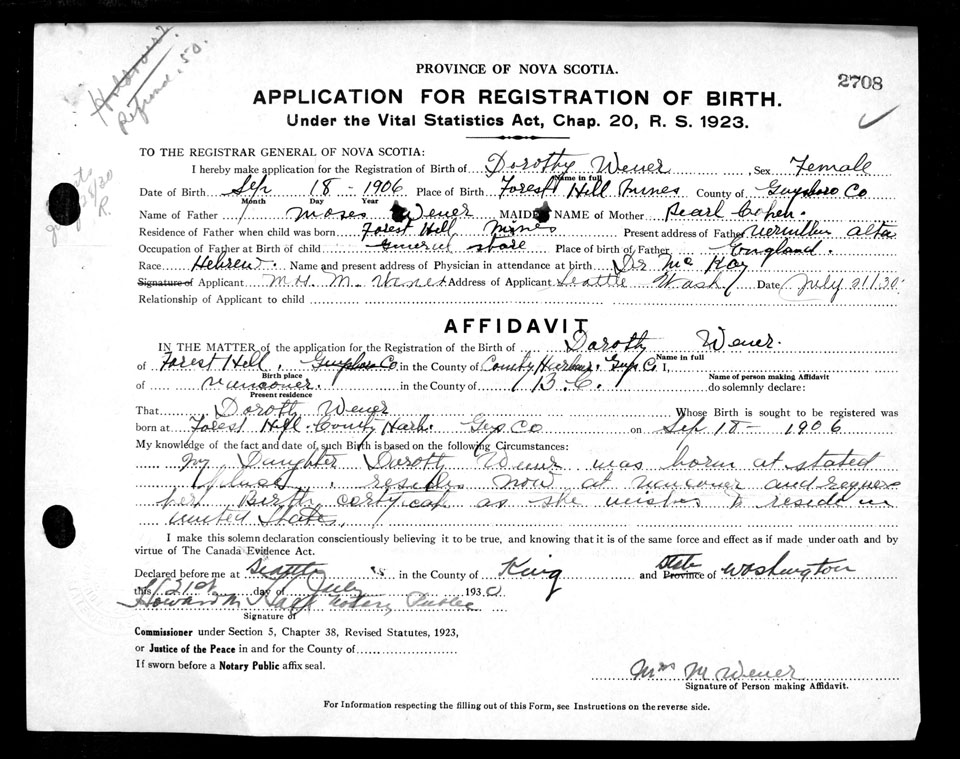 Refund .50.
2708
PROVINCE OF NOVA SCOTIA.
APPLICATION FOR REGISTRATION OF BIRTH.
Under the Vital Statistics Act, Chap. 20, R. S. 1923.
TO THE REGISTRAR GENERAL OF NOVA SCOTIA:
I hereby make application for the Registration of Birth of Dorothy Wener Sex Female
Name in full
Date of Birth Sep 18 - 1906 Place of Birth Forest Hill Mines County of Guysboro Co
Month Day Year
Name of Father Moses Wener MAIDEN NAME of Mother Pearl Cohen.
Residence of Father when child was born Forest Hill Mines Present address of Father Vermilion Alta
Occupation of Father at Birth of child General Store Place of birth of Father England.
Race Hebrew. Name and present address of Physician in attendance at birth Dr McKay
Signature of Applicant Mrs. M. Wener Address of Applicant Seattle Wash Date July 21/30
Relationship of Applicant to child
AFFIDAVIT
IN THE MATTER of the application for the Registration of the Birth of Dorothy Wener.
Name in full
of Forest Hill. Guysboro Co. in the County of County Harbour. Guys. Co I,
Birth place Name of person making Affidavit
of Vancouver. in the County of B.C. do solemnly declare:
Present residence
That Dorothy Wener Whose Birth is sought to be registered was
born at Forest Hill. County Harb. Guys Co on Sep 18 - 1906
My knowledge of the fact and date of such Birth is based on the following Circumstances:
My Daughter Dorothy Wener was born at stated
place. resides now at Vancouver and
her Birth as she wishes to reside in
United States.
I make this solemn declaration conscientiously believing it to be true, and knowing that it is of the same force and effect as if made under oath and by
virtue of The Canada Evidence Act.
Declared before me at Seattle in the County of King and State Province of Washington
this 21st day of July 1930
Howard M. Notary Public
Signature of
Commissioner under Section 5, Chapter 38, Revised Statutes, 1923,
or Justice of the Peace in and for the County of
If sworn before a Notary Public affix seal.
Mrs M Wener
Signature of Person making Affidavit.
For Information respecting the filling out of this Form, see Instructions on the reverse side.